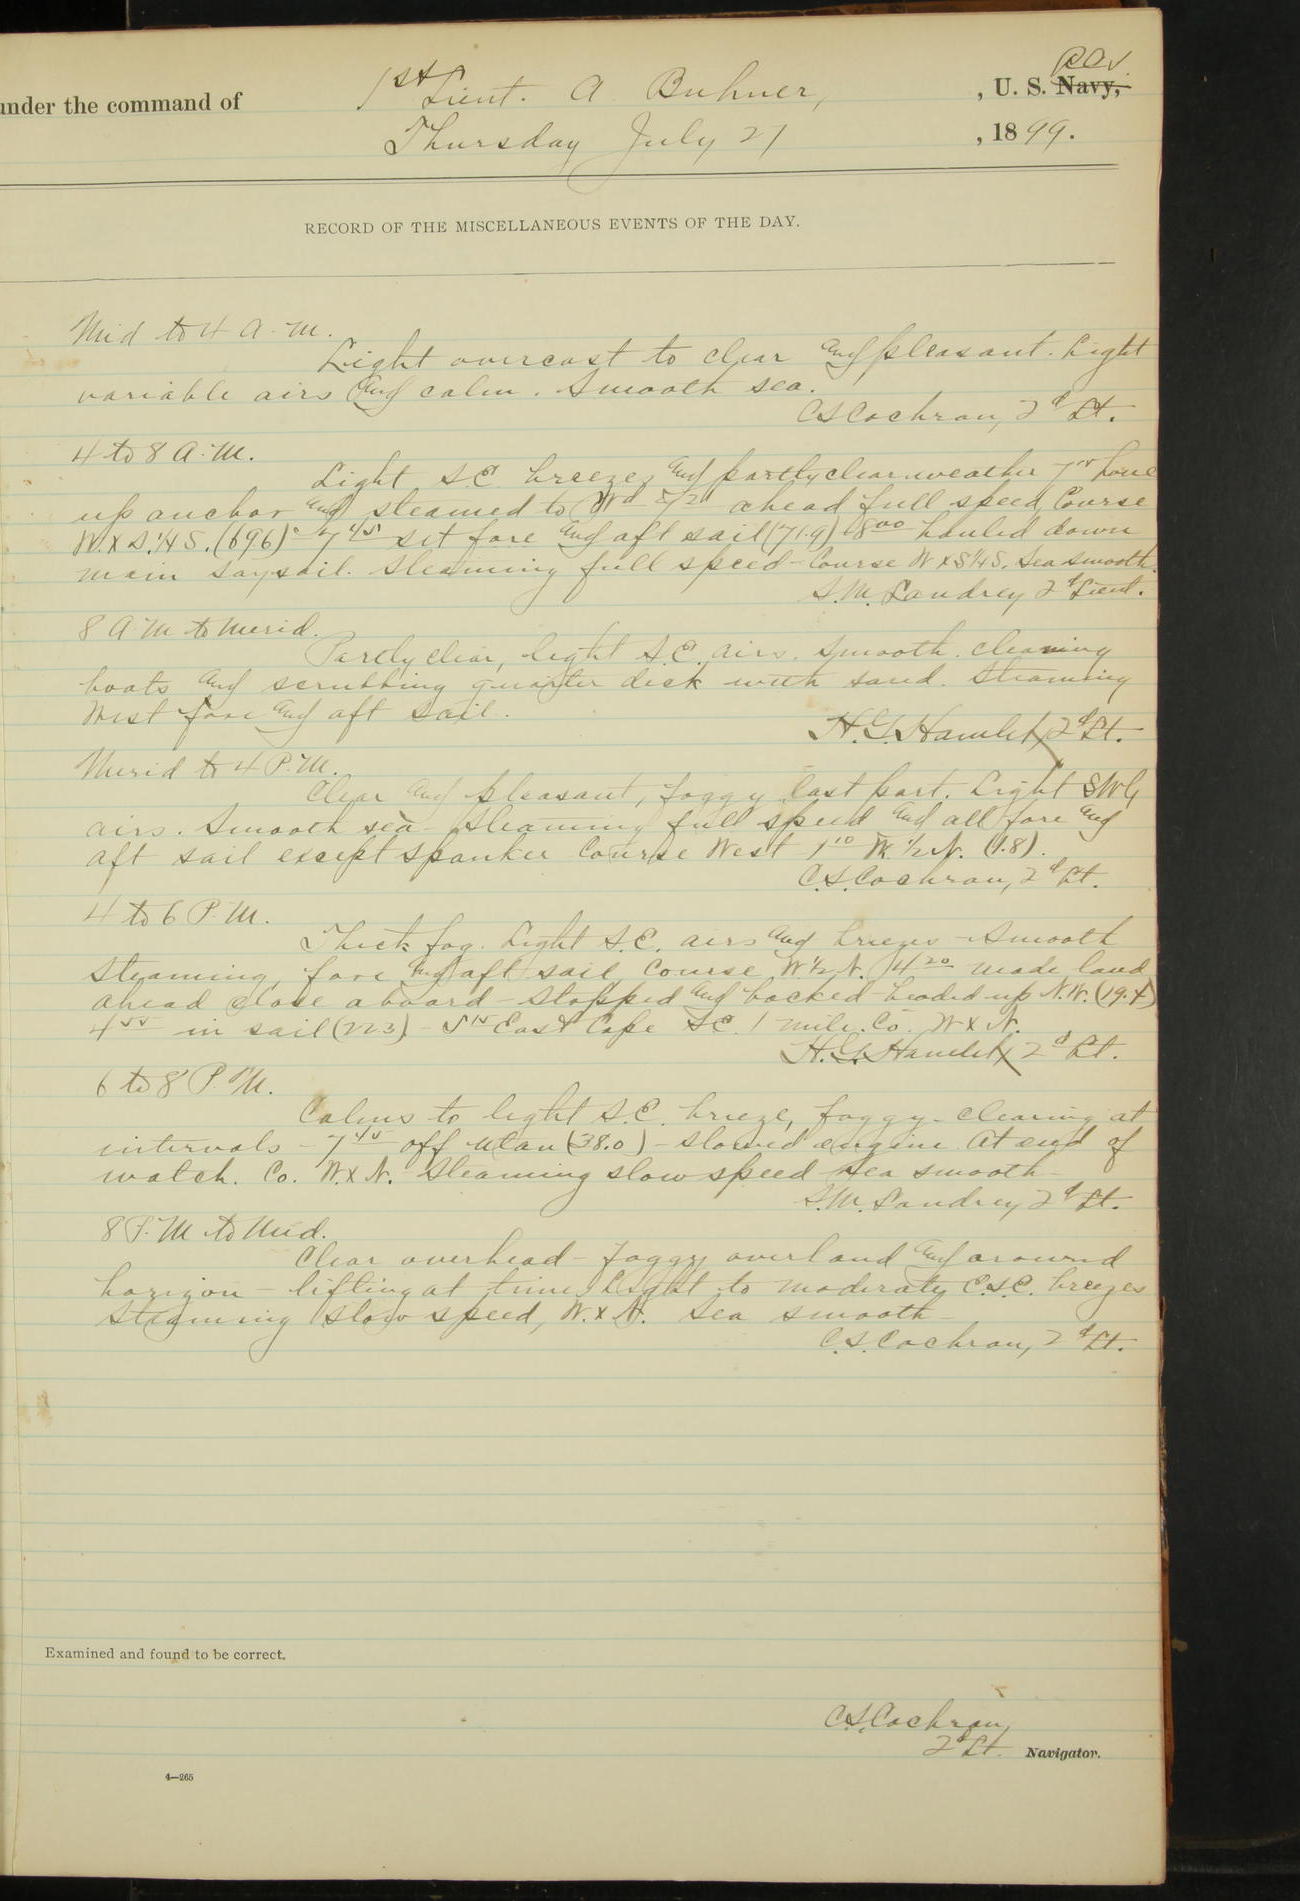 under the command of 1st Lieut. A Buhner, , U. S. Navy, R.C.S.
Thursday July 27 , 1899.
RECORD OF THE MISCELLANEOUS EVENTS OF THE DAY.
Mid to 4 A.M.
Light overcast to clear and pleasant. Light
variable airs and calm. Smooth sea.
C.S. Cochran, 2d Lt.
4 to 8 A.M.
Light S.E. breezes and partly clear weather 7 15 hove
up anchor and steamed to Wd 7 20 ahead full speed, Course
W.x S.1/4 S. (696) 7 45 set fore and aft sail (71.9) 8 00 hauled down
main saysail. Steaming full speed - Course W x S 1/4 S. Sea smooth.
S.M. Landrey 2d Lieut.
8 A.M to Merid.
Partly clear, light S.E. airs. Smooth. cleaning
boats and scrubbing quarter deck with sand. Steaming
West fore and aft sail.
H.G. Hamlet, 2d Lt.
Merid to 4 P.M.
Clear and pleasant, foggy last part. Light SWly
airs. Smooth sea - Steaming full speed and all fore and
aft sail except spanker Course West 1 10 W 1/2 N. (1.8).
C.S. Cochran, 2d Lt.
4 to 6 P.M.
Thick fog. Light S.E. airs and breezes - Smooth
Steaming, fore and aft sail Course W 1/2 N. 4 20 made land
ahead close aboard - Stopped and backed - headed up N.W. (19.4)
4 55 in sail (22.3) - 5 15 East Cape S.E. 1 mile. Co. W x N.
H.G. Hamlet, 2d Lt.
6 to 8 P.M.
Calms to light S.E. breeze, foggy - clearing at
intervals - 7 45 off Utan (38.0) - slowed engine. At end of
watch. Co. W.x N. Steaming slow speed - sea smooth -
S.M. Landrey 2d Lt.
8 P.M to Mid.
Clear overhead - foggy overland and around
horizon - lifting at times. Light to moderate E.S.E. breezes
Steaming slow speed, W.x N. Sea smooth -
C.S. Cochran, 2d Lt.
Examined and found to be correct.
C.S. Cochran,
2d Lt. Navigator.
4—265